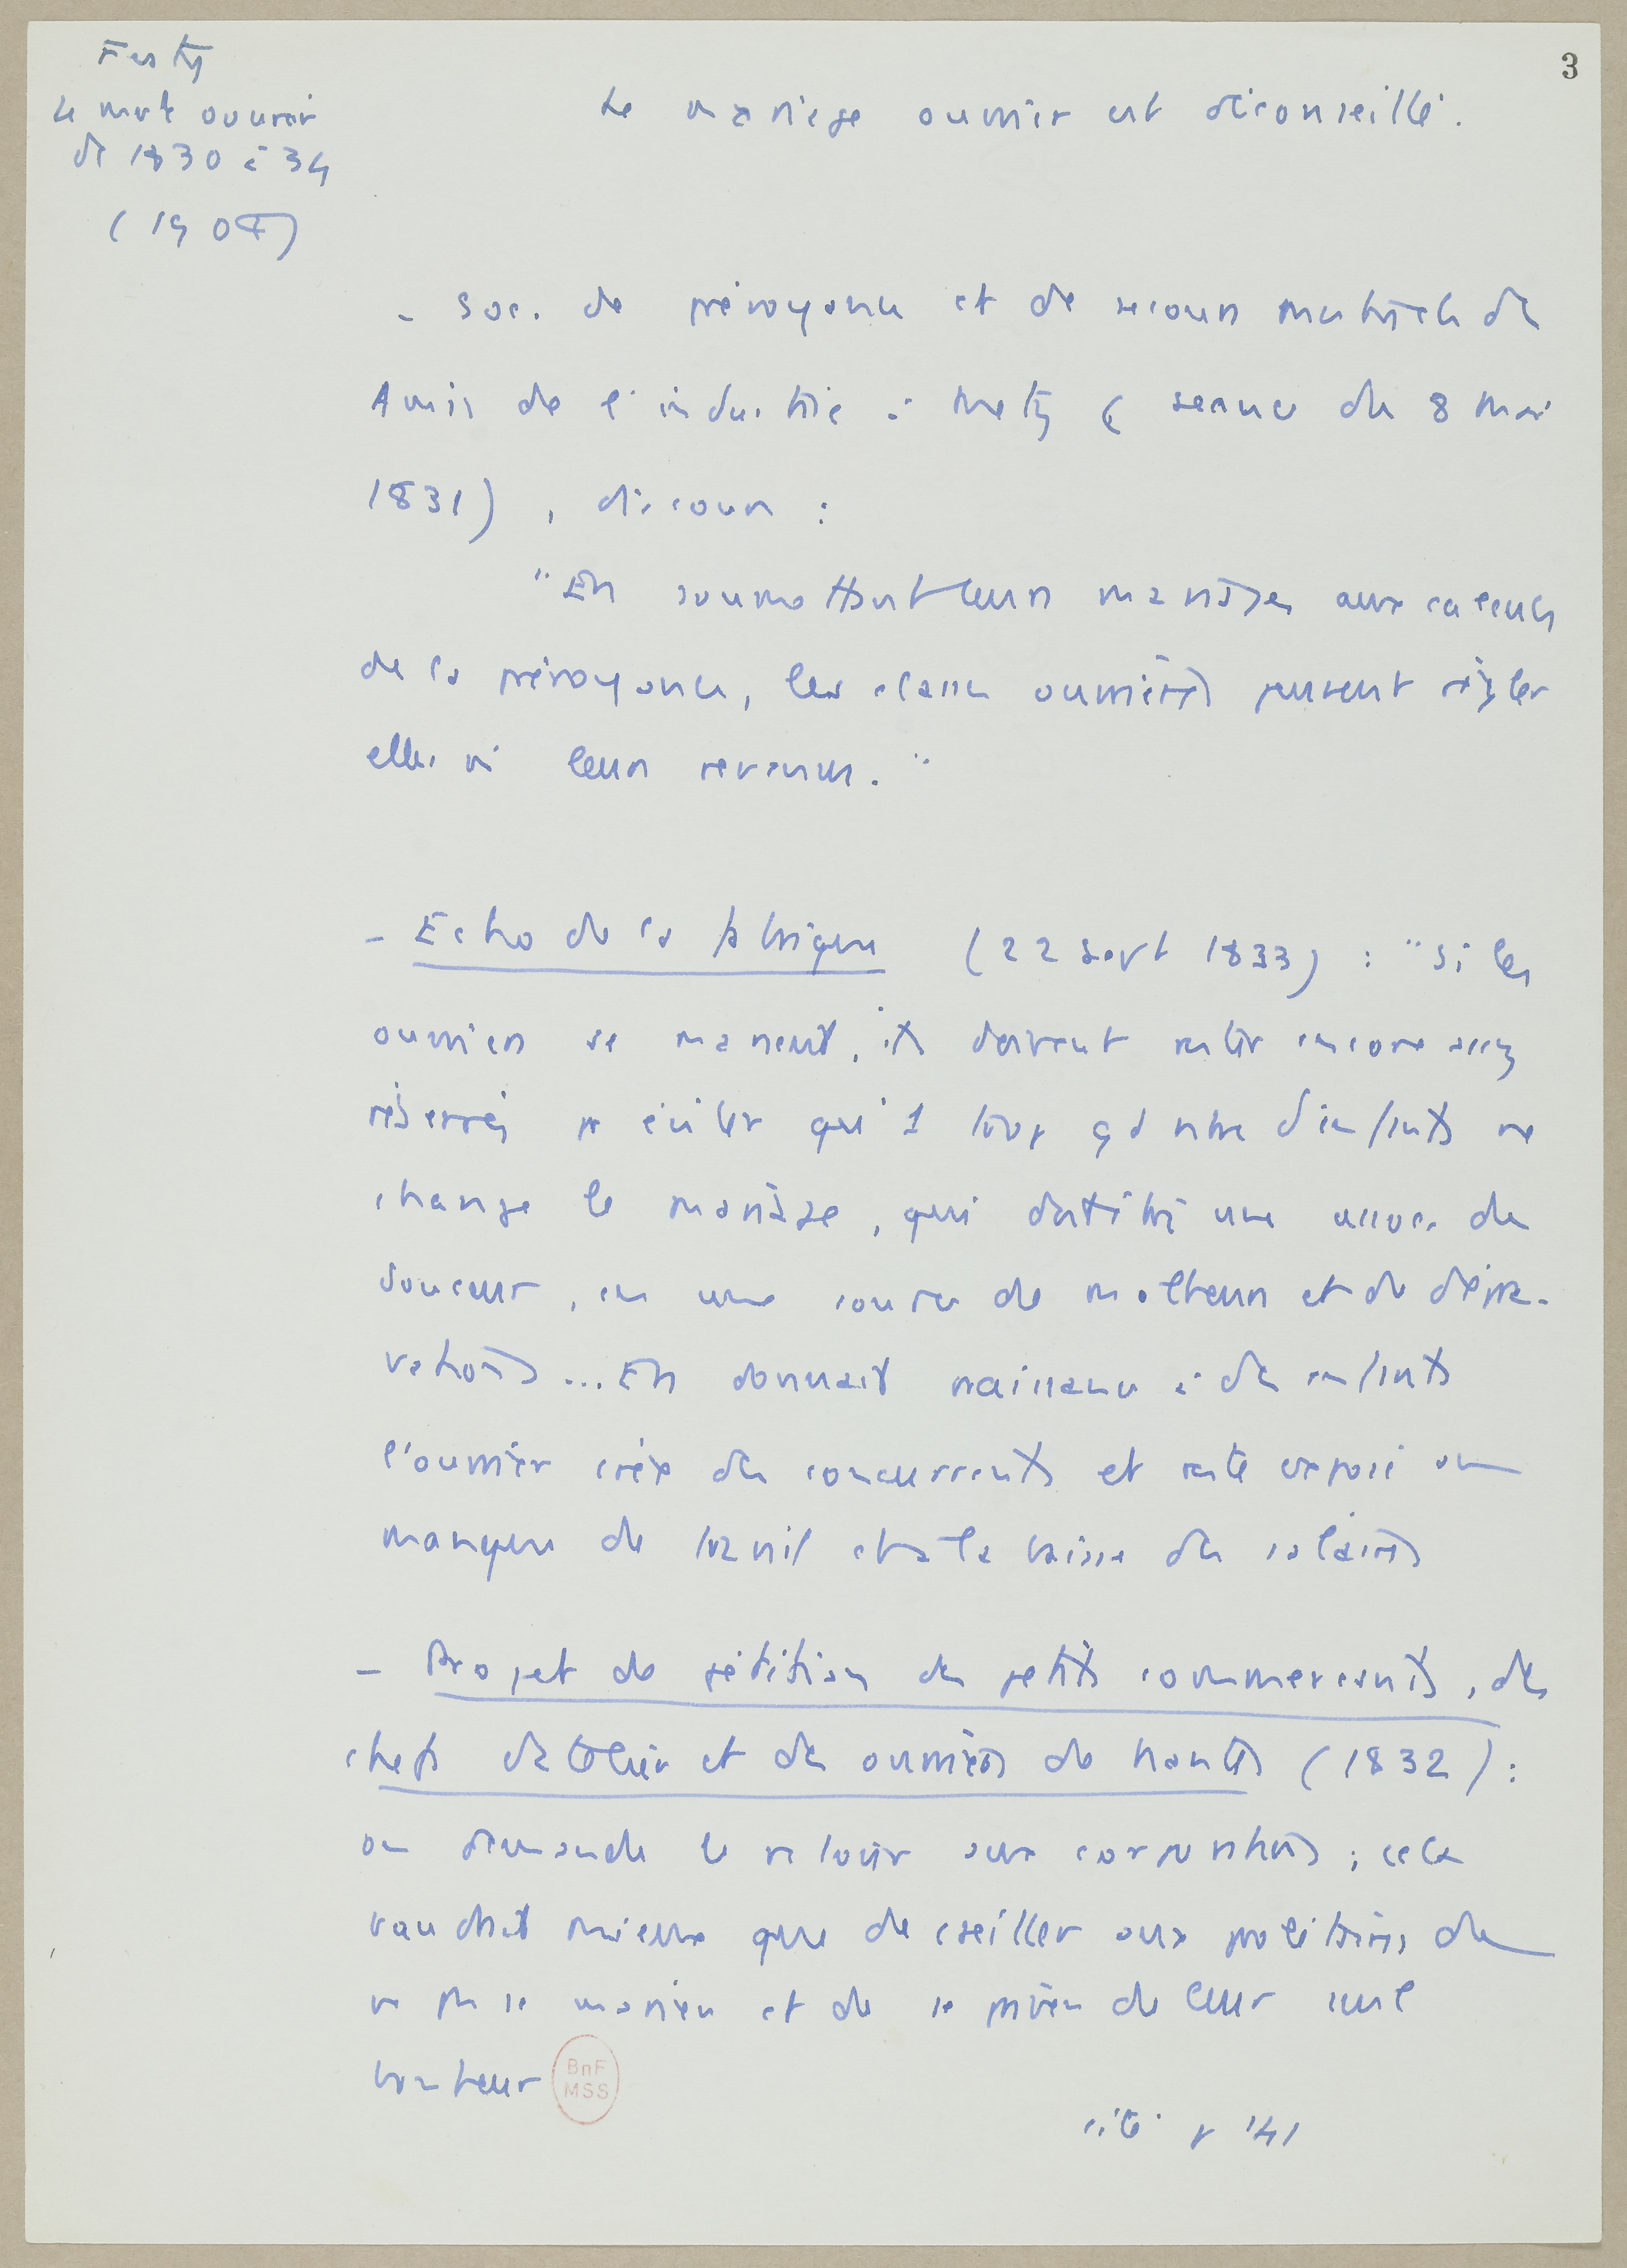 3
Festy
Le mvt ouvrier
de 1830 à 34
(1907)
Le mariage ouvrier est déconseillé.
- Soc. de prévoyance et de secours mutuels des
Amis de l'industrie à Metz (séance du 8 mai
1831), discours :
"En soumettant leurs mariages aux calculs
de la prévoyance, les classes ouvrières peuvent régler
elles mêmes leurs revenus."
- Echo de la fabrique (22 sept 1833) : "Si les
ouvriers se marient, ils doivent rester encore assez
réservés pr éviter qu'1 trop gd nbre d'enfants ne
change le mariage, qui doit être une source de
douceur, en une source de malheurs et de dépra-
vations... En donnant naissance à des enfants
l'ouvrier crée des concurrents et reste exposé au
manque de travail et à la baisse des salaires
- Projet de pétition des petits commerçants, des
chefs d'atelier et des ouvriers de Nantes (1832) :
on demande le retour aux corporations ; cela
vaudrait mieux que de cseiller aux prolétaires de
ne pas se marier et de se priver de leur seul
bonheur
BnF
MSS
cité p 141